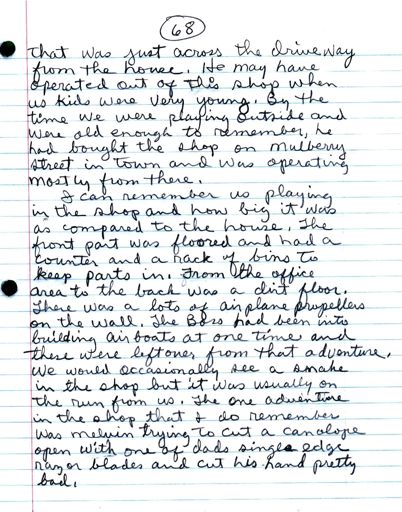 68
that was just across the driveway
from the house. He may have
operated out of this shop when
us kids were very young. By the
time we were playing outside and
were old enough to remember, he
had bought the shop on Mulberry
street in town and was operating
mostly from there.
I can remember us playing
in the shop and how big it was
as compared to the house. The
front part was floored and had a
counter and a rack of bins to
keep parts in. From the office
area to the back was a dirt floor.
There was a lots of airplane propellers
on the wall. The Boss had been into
building airboats at one time and
there were leftover from that adventure.
We would occasionally see a snake
in the shop but it was usually on
the run from us. The one adventure
in the shop that I do remember
was melvin trying to cut a canolope
open with one of dads single edge
razor blades and cut his hand pretty
bad.